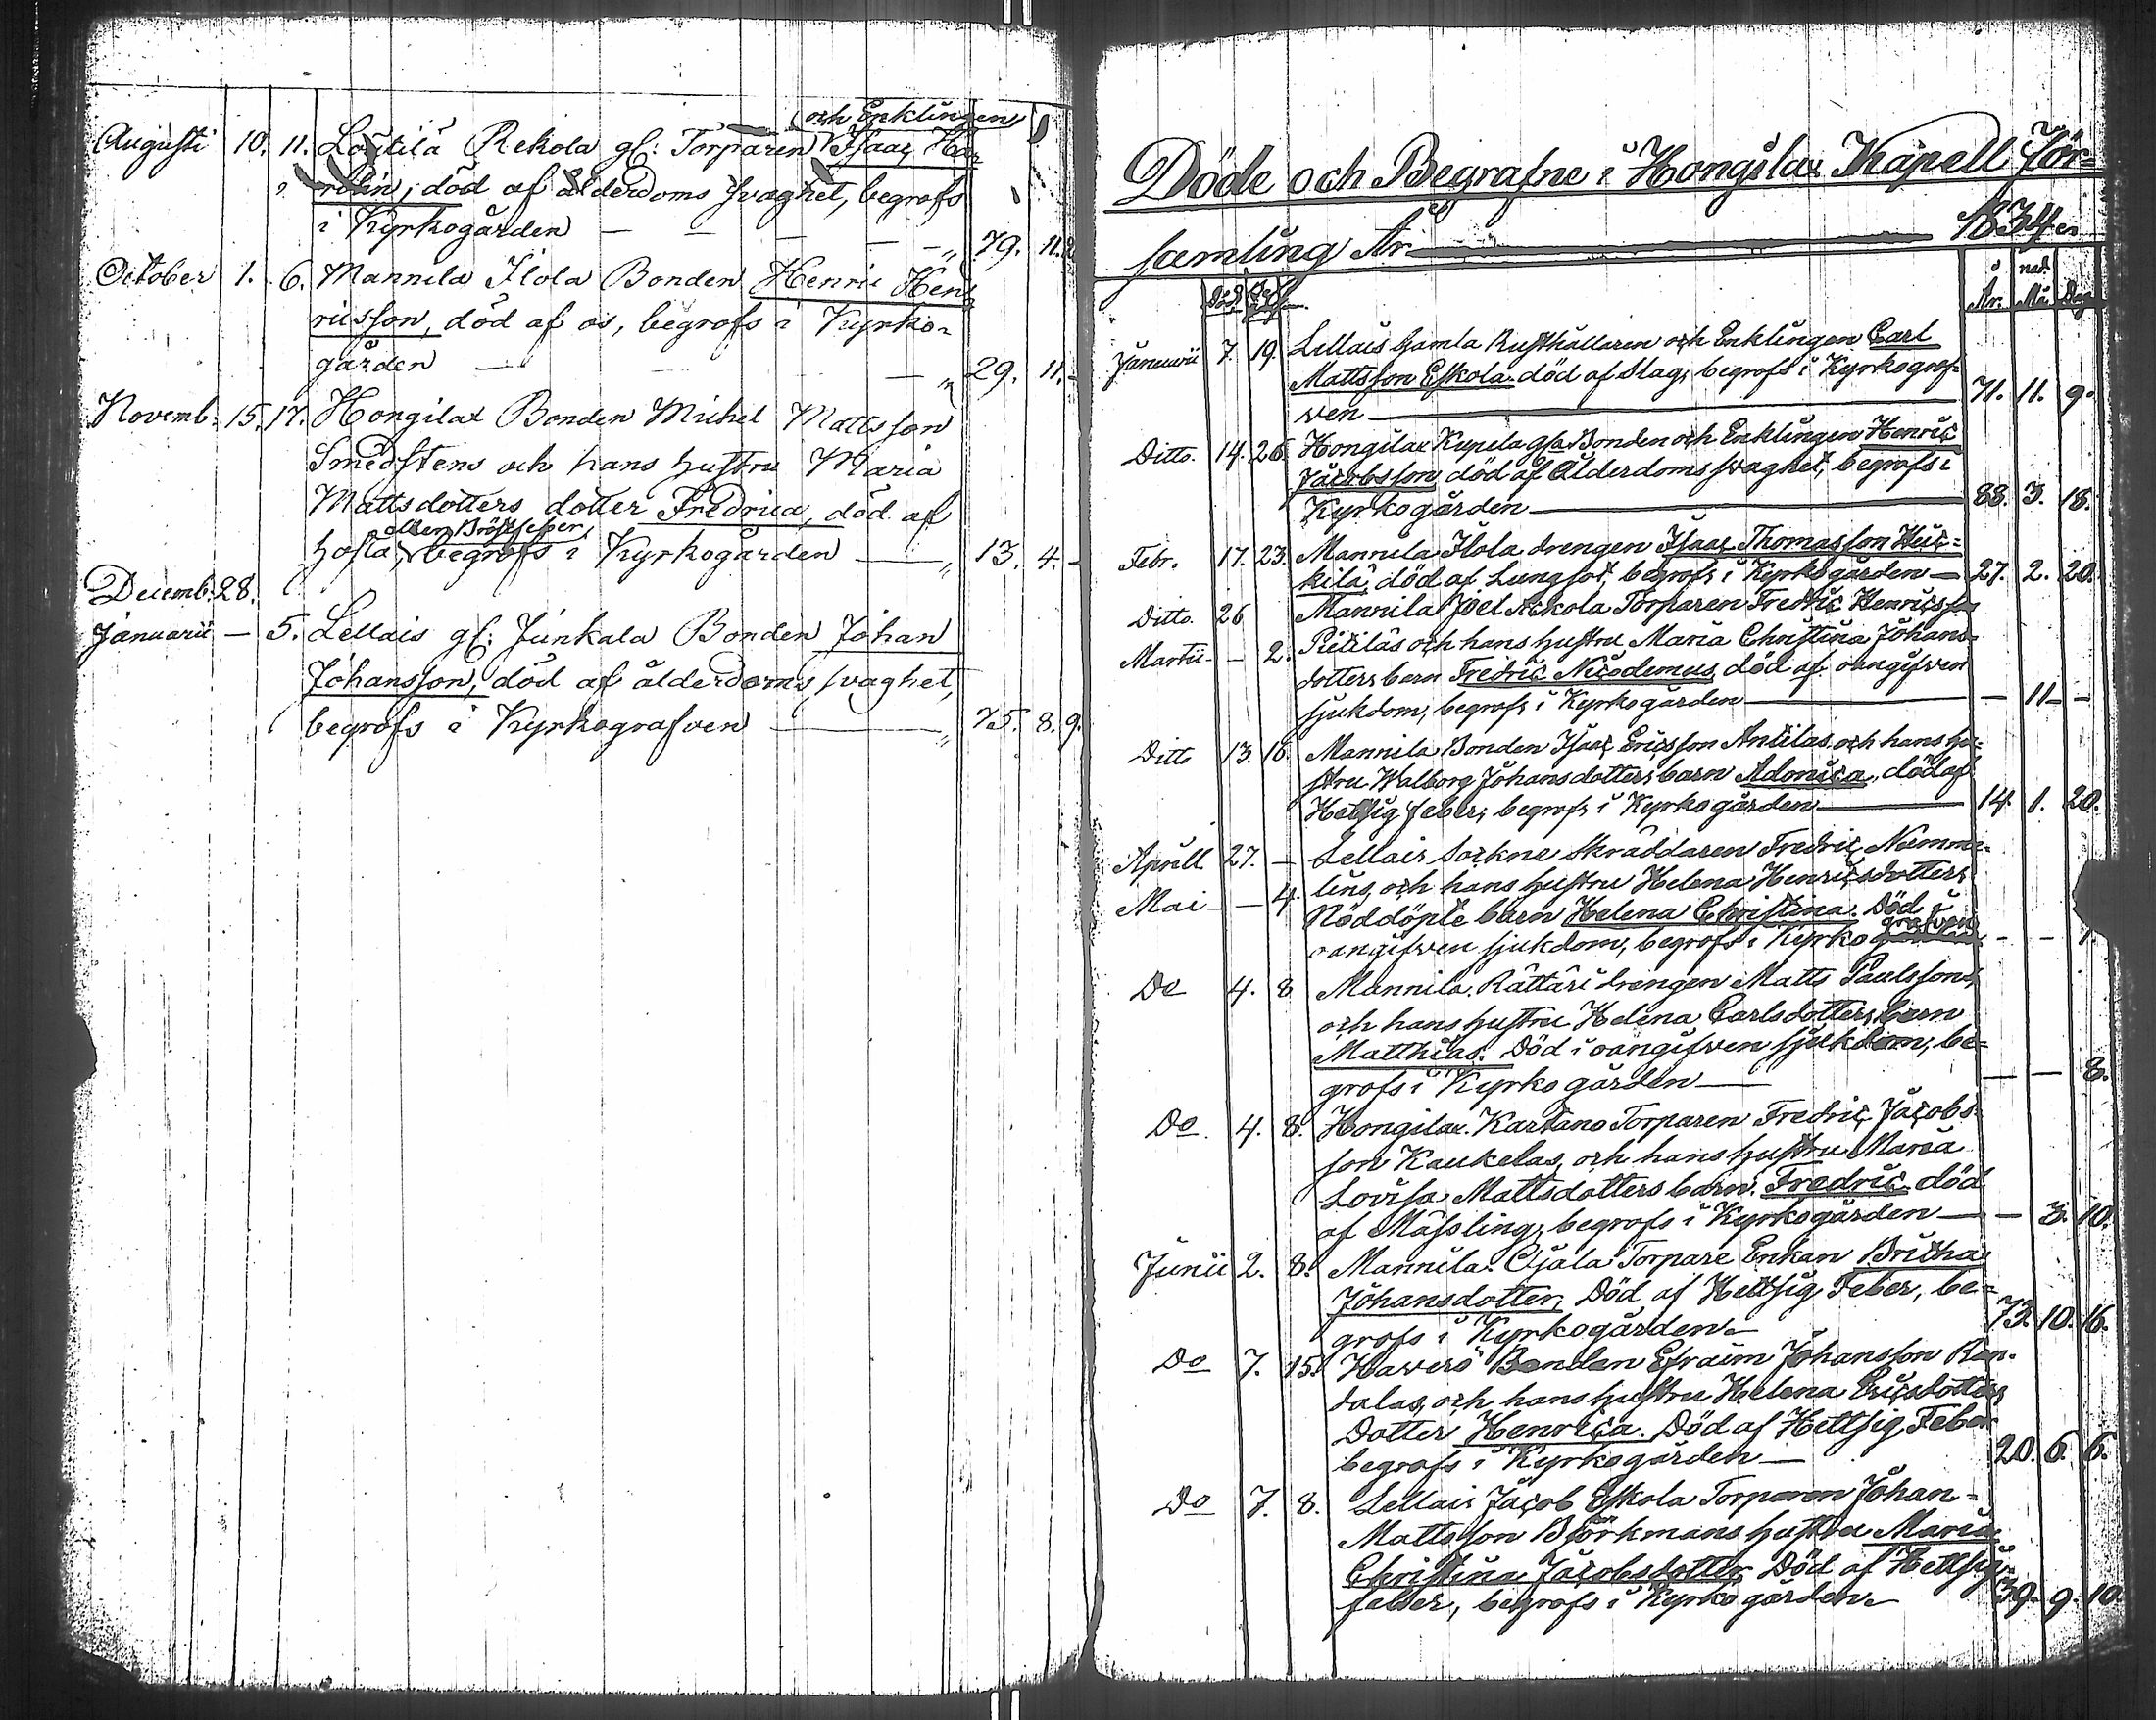 och Enklingen
Augusti 10. 11. Loutila Rekola gl: Torparen Isaac Har
rolin, död af ålderdoms svaghet, begrofs
i Kyrkogården — — — — — 79. 11.
October 1. 6. Mannila Ilola Bonden Henric Hen
ricsson, död af os, begrofs i Kyrko-
gården — — 29. 11. -
Novemb: 15. 17. Hongilax Bonden Michel Mattsson
Smedstens och hans hustru Maria
Mattsdotters dotter Fredrica, död af
eller Bröstfeber,
hosta, begrofs i Kyrkogården — 13. 4. -
Decemb: 28.
Januarii — 5. Lellais gl: Junkala Bonden Johan
Johansson, död af ålderdoms svaghet,
begrofs i Kyrkografven — 75. 8. 9.
Döde och Begrafne i Hongilax Kapell För-
samling År 1834
Död
År. Månad Dag
Januarii 7. 19. Lellais gamla Rusthållaren och Enklingen Carl
Mattsson Eskola död af Slag, begrofs i Kyrkograf-
ven — 71. 11. 9.
Ditto. 14. 26. Hongilax Kypela gla Bonden och Enklingen Henric
Jacobsson död af Ålderdoms svaghet, begrofs i
Kyrkogården — 88. 3. 18.
Febr. 17. 23. Mannila Ilola drengen Isaac Thomasson Huc-
kila, död af Lungsot, begrofs i Kyrkogården — 27. 2. 20.
Ditto. 26 Mannila Joel Torparen Fredric Henricsson
Martii — 2. Pietilas och hans hustru Maria Christina Johans-
dotters barn Fredric Nicodemus, död af oangifven
sjukdom, begrofs i Kyrkogården — — 11 — -
Ditto 13. 16. Mannila Bonden Isaac Ericsson Antilas och hans hu-
stru Walborg Johansdotters barn Adonica, död af
Hetsig feber, begrofs i Kyrkogården — 14. 1. 20.
Aprill 27. — Lellais Sockne Skräddaren Fredric Numme-
Mai — — 4. lins, och hans hustru Helena Henricsdotters
Nöddöpte barn Helena Christina. Död i
oangifven sjukdom, begrofs i Kyrkografven - - 1.
Do 4. 8 Mannila Rättäri drengen Matts Paulssons,
och hans hustru Helena Carlsdotters barn
Matthias. Död i oangifven sjukdom, be-
grofs i Kyrkogården — — — 8.
Do 4. 8. Hongilax Kartano Torparen Fredric Jacobs-
son Kaukelas, och hans hustru Maria
Lovisa Mattsdotters barn Fredric död
af Mässling, begrofs i Kyrkogården — — 3. 10.
Junii 2. 8. Mannila Ojala Torpare Enkan Britha
Johansdotter, Död af Hettsig Feber, be-
grofs i Kyrkogården — 73. 10. 16.
Do 7. 15. Haverö Bonden Efraim Johansson Ran-
dalas, och hans hustru Helena Ericsdotters
Dotter Henrica. Död af Hettsig Feber
begrofs i Kyrkogården — 20. 6. 6.
Do 7. 8. Lellais Jacob Eskola Torparen Johan
Mattsson Björkmans hustru Maria
Christina Jacobsdotter Död af Hettsig
feber, begrofs i Kyrkogården 39. 9. 10